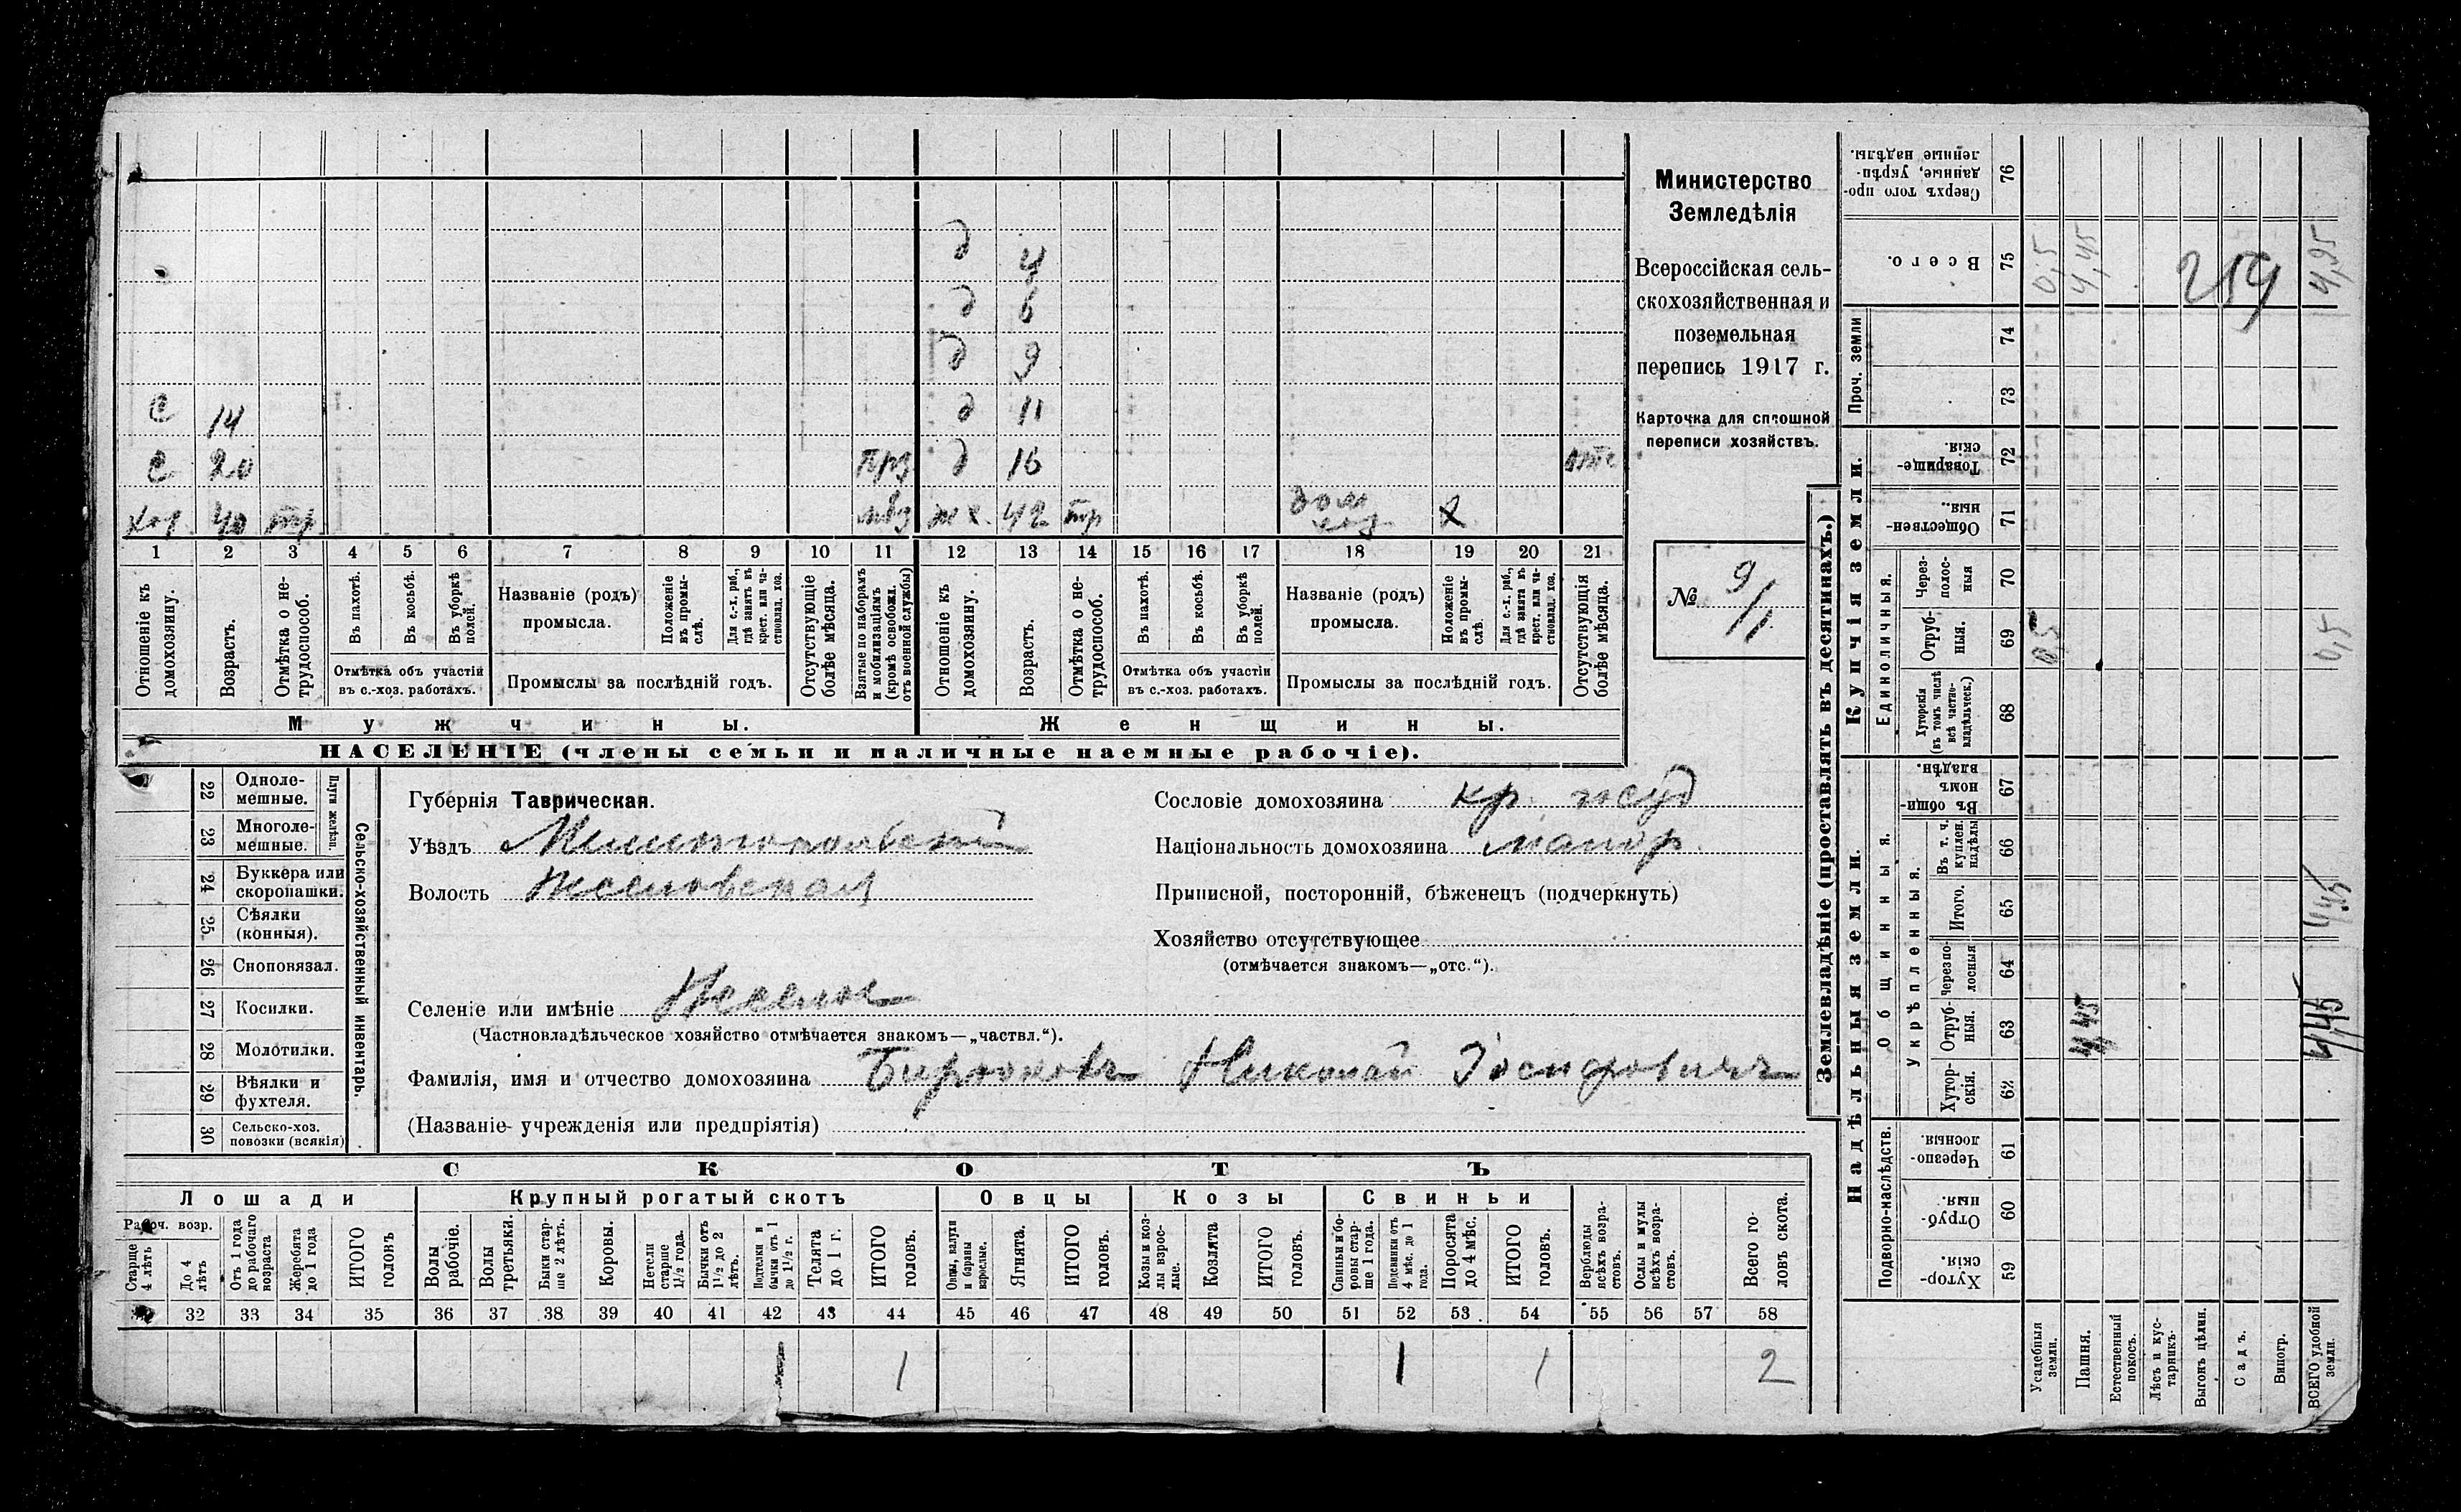 д
4
д 6
д 9
с 14 д 11
с 20 д 16 отс
хоз. 40 тр ж х. 42 тр дом х
1 2 3 4 5 6 7 8 9 10 11 12 13 14 15 16 17 18 19 20 21
Отношеніе къ домохозяину.
Возрастъ.
Отмѣтка о нетрудоспособ.
Въ пахотѣ.
Въ косьбѣ.
Въ уборкѣ полей.
Отмѣтка объ участіи въ с.-хоз. работахъ.
Названіе (родъ) промысла.
Положеніе въ промыслѣ.
Для с.-х. раб., гдѣ занятъ въ крест. или частновлад. хоз.
Промыслы за послѣдній годъ.
Отсутствующіе болѣе мѣсяца.
Взятые по наборамъ и мобилизаціямъ (кромѣ освобожд. отъ военной службы)
Отношеніе къ домохозяину.
Возрастъ.
Отмѣтка о нетрудоспособ.
Въ пахотѣ.
Въ косьбѣ.
Въ уборкѣ полей.
Отмѣтка объ участіи въ с.-хоз. работахъ.
Названіе (родъ) промысла.
Положеніе въ промыслѣ.
Для с.-х. раб., гдѣ занята въ крест. или частновлад. хоз.
Промыслы за послѣдній годъ.
Отсутствующія болѣе мѣсяца.
Мужчины. Женщины.
НАСЕЛЕНІЕ (члены семьи и наличные наемные рабочіе).
Министерство
Земледѣлія
Всероссійская сель-
скохозяйственная и
поземельная
перепись 1917 г.
Карточка для сплошной
переписи хозяйствъ.
№ 9/1
Сельско-хозяйственный инвентарь.
Плуги желѣзн.
22 Одноле-
мешные.
23 Многоле-
мешные.
24 Буккера или
скоропашки.
25 Сѣялки
(конныя).
26 Сноповязал.
27 Косилки.
28 Молотилки.
29 Вѣялки и
фухтеля.
30 Сельско-хоз.
повозки (всякія)
Губернія Таврическая.
Уѣздъ Мелитопольскій
Волость Веселовская
Селеніе или имѣніе Веселое
(Частновладѣльческое хозяйство отмѣчается знакомъ—„частвл.“).
Фамилія, имя и отчество домохозяина Бирюковъ Николай Іосифовичъ
(Названіе учрежденія или предпріятія)
Сословіе домохозяина кр.
Національность домохозяина малор.
Приписной, посторонній, бѣженецъ (подчеркнуть)
Хозяйство отсутствующее
(отмѣчается знакомъ—„отс.“).
СКОТЪ
Лошади Крупный рогатый скотъ Овцы Козы Свиньи
Рабоч. возр.
Старше 4 лѣтъ
До 4 лѣтъ
Отъ 1 года до рабочаго возраста
Жеребята до 1 года
ИТОГО головъ
Волы рабочіе.
Волы третьяки.
Быки старше 2 лѣтъ.
Коровы.
Нетели старше 1½ года.
Бычки отъ 1½ до 2 лѣтъ.
Подтелки и бычки отъ 1 до 1½ г.
Телята до 1 г.
ИТОГО головъ.
Овцы, валухи и бараны взрослые.
Ягнята.
ИТОГО головъ.
Козы и козлы взрослые.
Козлята
ИТОГО головъ.
Свиньи и боровы старше 1 года.
Подсвинки отъ 4 мѣс. до 1 года.
Поросята до 4 мѣс.
ИТОГО головъ.
Верблюды всѣхъ возрастовъ.
Ослы и мулы всѣхъ возрастовъ.
Всего головъ скота.
32 33 34 35 36 37 38 39 40 41 42 43 44 45 46 47 48 49 50 51 52 53 54 55 56 57 58
1 1 1 1 2
Землевладѣніе (проставлять въ десятинахъ.)
Надѣльныя земли. Купчія земли.
Подворно-наслѣдств.
Общинныя.
укрѣпленныя.
Единоличныя.
Проч. земли
Сверхъ того проданные, укрѣпленные надѣлы. 76
Всего. 75 0,5 4,45 259 4,95
74
73
Товарищескія. 72
Общественныя. 71
Черезполосныя 70
Отрубныя. 69 0,5 0,5
Хуторскія (въ томъ числѣ всѣ частновладѣльческ.) 68
Въ общинномъ владѣн. 67
Въ т. ч. куплен. надѣлы 66
Итого. 65 4,45
Черезполосныя 64
Отрубныя. 63 4,45 4,45
Хуторскія. 62
Черезполосныя 61
Отрубныя. 60
Хуторскія. 59
Усадебныя земли.
Пашня.
Естественный покосъ.
Лѣсъ и кустарникъ.
Выгонъ цѣлин.
Садъ.
Виногр.
ВСЕГО удобной земли.